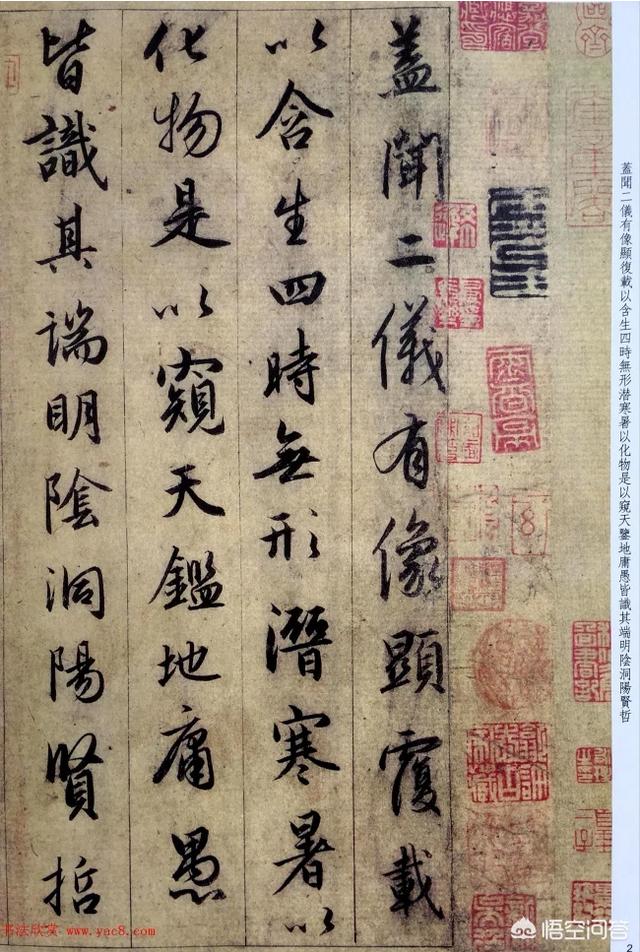 蓋聞二儀有像顯覆載
以含生四時無形潛寒暑以
化物是以窺天鑑地庸愚
皆識其端明陰洞陽賢哲
蓋聞二儀有像顯復載以含生四時無形潜寒暑以化物是以窺天鑒地庸愚皆識其端明陰洞陽賢哲
2
书法欣赏 www.yac8.com
悟空问答